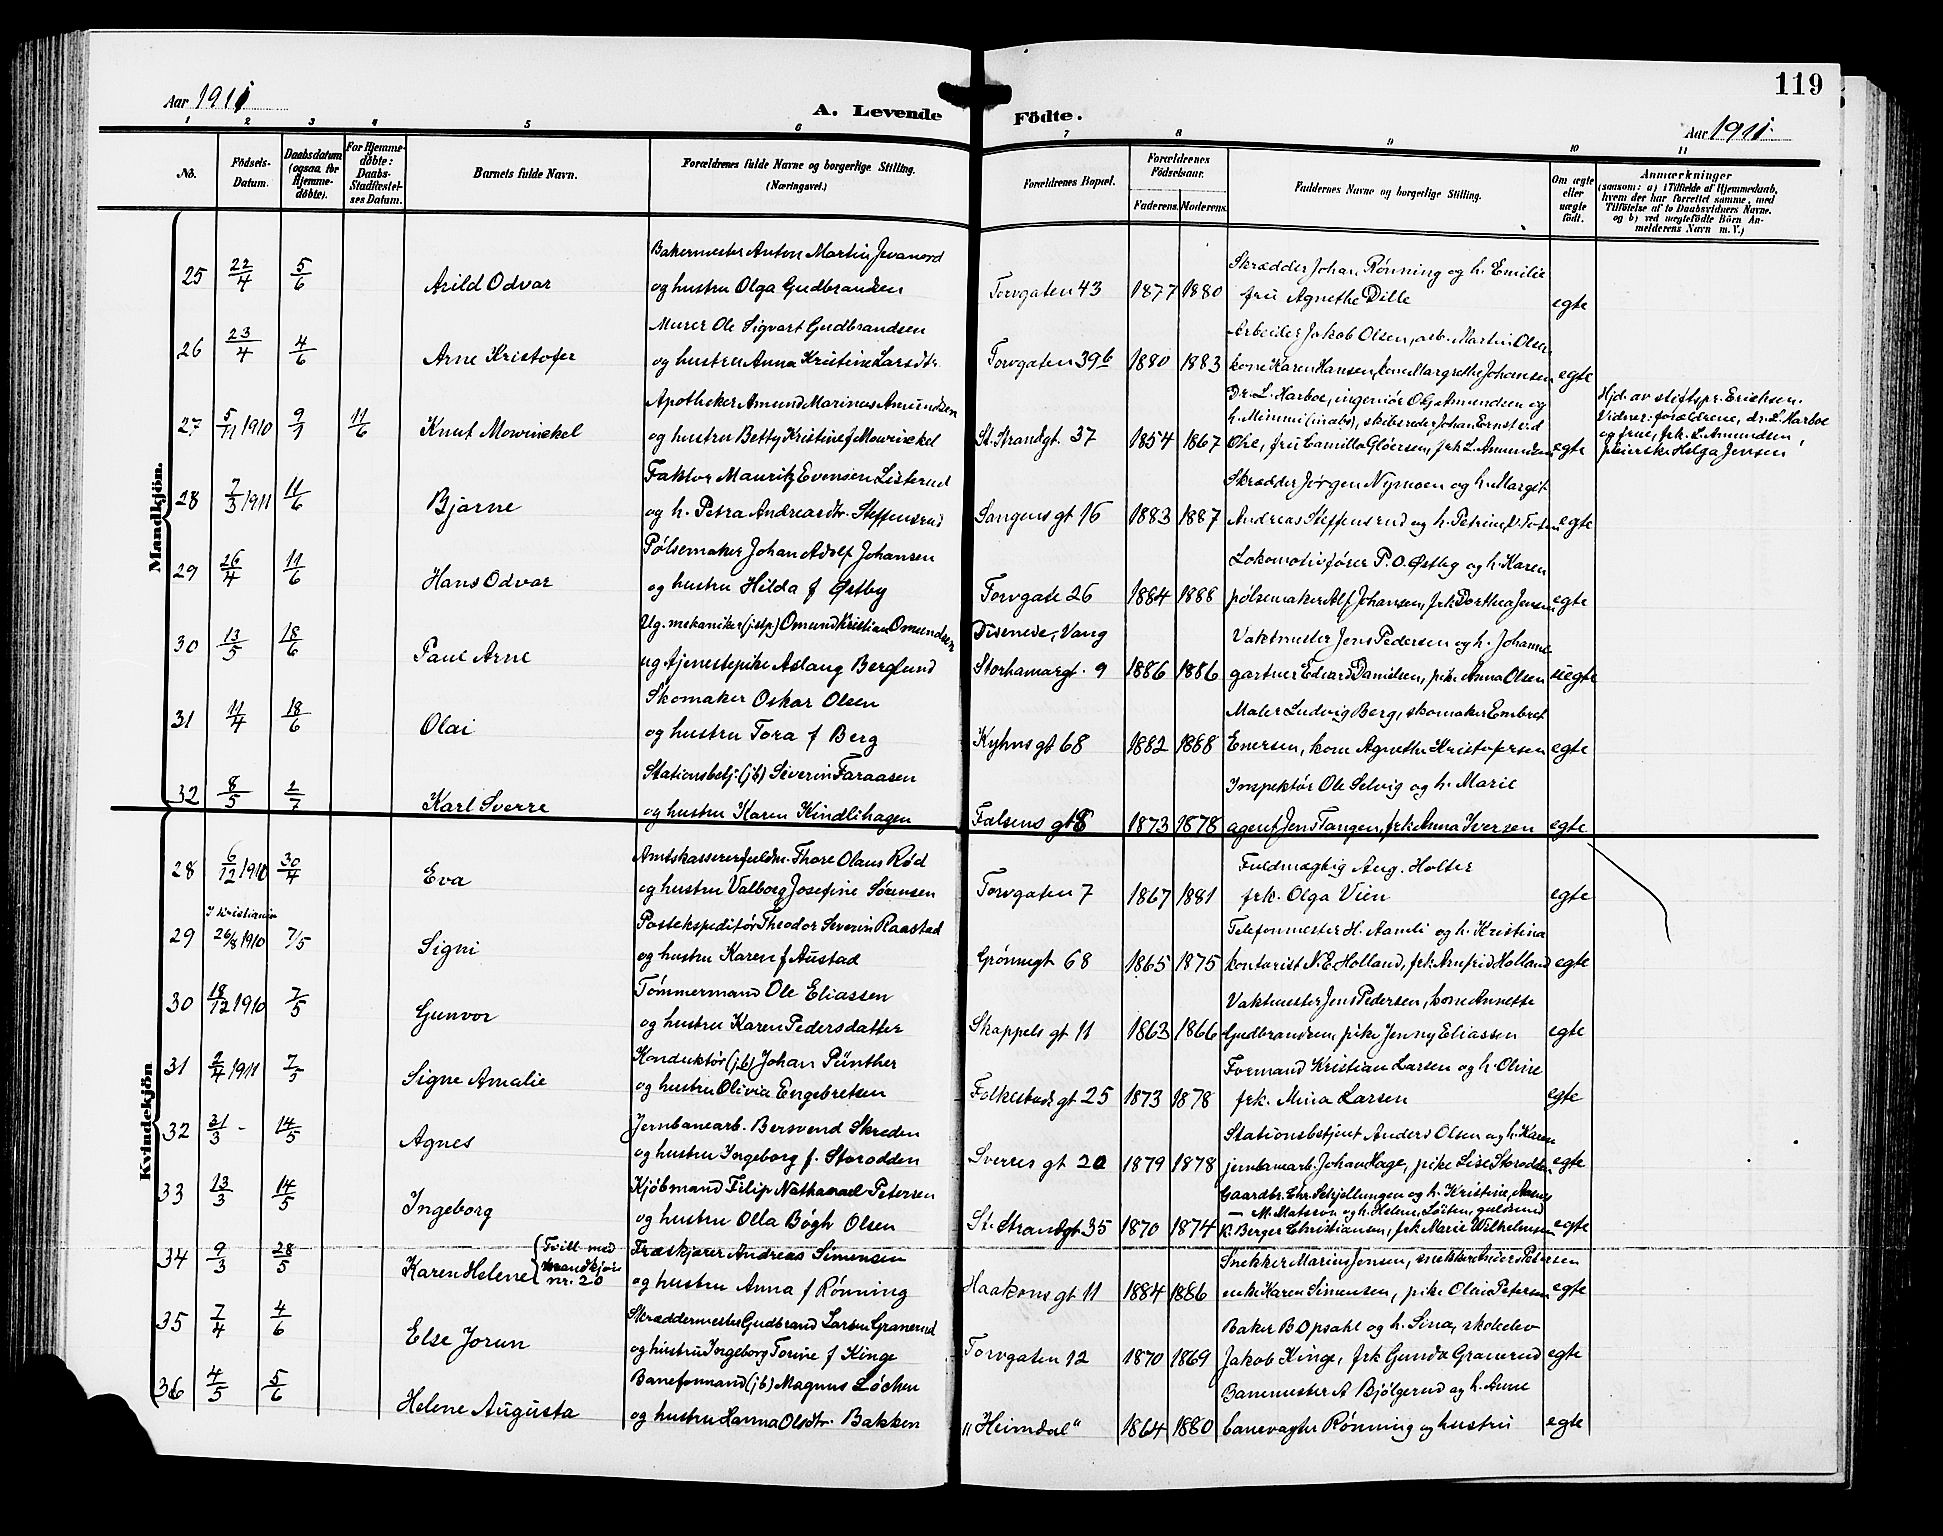 119
Aar 1911
A. Levende Födte.
Aar 1911.
1 2 3 4 5 6 7 8 9 10 11
No.
Födsels-Datum.
Daabsdatum (ogsaa for Hjemme-döbte).
For Hjemme-döbte: Daabs-Stadfæstel-ses Datum.
Barnets fulde Navn.
Forældrenes fulde Navne og borgerlige Stilling. (Næringsvei.)
Forældrenes Bopæl.
Forældrenes Födselsaar.
Faderens. Moderens.
Faddernes Navne og borgerlige Stilling.
Om ægte eller uægte födt.
Anmærkninger (saasom: a) i Tilfælde af Hjemmedaab, hvem der har forrettet samme, med Tilföielse af to Daabsvidners Navne, og b) ved uægtefödte Börn An-melderens Navn m. V.)
Mandkjön.
Bakermester Anton Martin Jevanord Skrædder Johan Rønning og h. Emilie
25 22/4 5/6 Arild Odvar og hustru Olga Gudbrandsen Torvgaten 43 1877 1880 fru Agnethe Dille egte
Murer Ole Sigvart Gudbrandsen Arbeider Jakob Olsen, arb. Martin Olsen
26 23/4 4/6 Arne Kristofer og hustru Anna Kristine Larsdtr. Torvgaten 39b 1880 1883 kone Karen Hansen, kone Margrethe Johansen egte
Apotheker Amund Marinus Amundsen Dr. L. Harboe, ingeniør O.G. Amundsen og
27 5/11 1910 9/1 11/6 Knut Mowinckel og hustru Betty Kristine f Mowinckel St. Strandgt. 37 1854 1867 h. Mimmi (inabs), skibsreder Johan Ernst
fru Camilla Gløersen, frk L. Amundsen egte
Hjd. av stiftspr. Erichsen.
Vidner: forældrene, dr. L. Harboe
og frue, frk. L. Amundsen,
pleierske Helga Jensen
Faktor Mauritz Evensen Listerud Skrædder Jørgen Nymoen og h. Margit
28 7/3 1911 11/6 Bjarne og h. Petra Andreasdtr. Steffensrud Vangens gt 16 1883 1887 Andreas Steffensrud og h. Petrine, V. Toten egte
Pølsemaker Johan Adolf Johansen Lokomotivfører P. O. Østby og h. Karen
29 26/4 11/6 Hans Odvar og hustru Hilda f Østby Torvgate 26 1884 1888 pølsemaker Alf Johansen, frk. Dorthea Jensen egte
Ug. mekaniker Omund Kristian Omundsen Diseneie, Vang Vaktmester Jens Pedersen og h. Johanne
30 13/5 18/6 Paul Arne ug tjenestepike Aslaug Berglund Storhamargt. 9 1886 1886 gartner Edvard Danielsen, pike Anna Olsen uegte
Skomaker Oskar Olsen Maler Ludvig Berg, skomaker Embret
31 11/4 18/6 Olai og hustru Tora f Berg Kyhns gt 68 1882 1888 Enersen, kone Agnethe Kristofersen egte
Stationsbetj. (jb) Severin Faraasen Inspektør Ole Selvig og h. Marie
32 8/5 2/7 Karl Sverre og hustru Karen Kindlihagen Falsens gt 18 1873 1878 agent Jens Tangen, frk Anna Iversen egte
Kvindekjön
Amtskassererfuldm. Thore Olaus Rød Fuldmægtig Aug. Holter
28 6/12 1910 30/4 Eva og hustru Valborg Josefine Sørensen Torvgaten 7 1867 1881 frk. Olga Vien egte
I Kristiania Postekspeditør Theodor Severin Raastad Telefonmester H. Aamli og h. Kristina
29 26/8 1910 7/5 Signi og hustru Karen f Austad Grønnegt 68 1865 1875 kontorist N. E. Holland, frk. Arnfrid Holland egte
Tømmermand Ole Eliassen Vaktmester Jens Pedersen, kone Annette
30 18/12 1910 7/5 Gunvor og hustru Karen Pedersdatter Skappels gt 11 1863 1866 Gudbrandsen, pike Jenny Eliassen egte
Konduktør (jb) Johan Pünther Formand Kristian Larsen og h. Oline
31 2/4 1911 7/5 Signe Amalie og hustru Olivia Engebretsen Folkestads gt 25 1873 1878 frk. Mina Larsen egte
Jernbanearb. Bersvend Skreden Stationsbetjent Anders Olsen og h. Karen
32 31/3 - 14/5 Agnes og hustru Ingeborg f. Storodden Sverres gt 20 1879 1878 jernbanearb. Johan Hage, pike Lise Storodden egte
Kjøbmand Filip Nathanael Petersen Gaardbr. Chr. Schjellungen og h. Kristine,
33 13/3 14/5 Ingeborg og hustru Olla Bøgh Olsen St. Strandgt 35 1870 1874 - M. Matsson og h. Helene, Løiten, guldsmed
k. Berger Christiansen, frk. Marie Wilhelmsen egte
Træskjærer Andreas Simensen Snekker Marius Jensen, snekker Anders Petersen
34 9/3 28/5 Karen Helene { Tvill. med mandkjøn nr. 20 og hustru Anna f Rønning Haakons gt 11 1884 1886 enke Karen Simensen, pike Olai Petersen egte
Skræddermester Gudbrand Larsen Granerud Baker B Opsahl og h. Sina, skoleelev
35 7/4 4/6 Else Jorun og hustru Ingeborg Torine f Kinge Torvgaten 12 1870 1869 Jakob Kinge, frk Gunda Granerud egte
Baneformand (jb) Magnus Løchen Banemester A Bjølgerud og h. Anne
36 4/5 5/6 Helene Augusta og hustru Hanna Olsdtr. Bakken "Heimdal" 1864 1880 banevagter Rønning og hustru egte